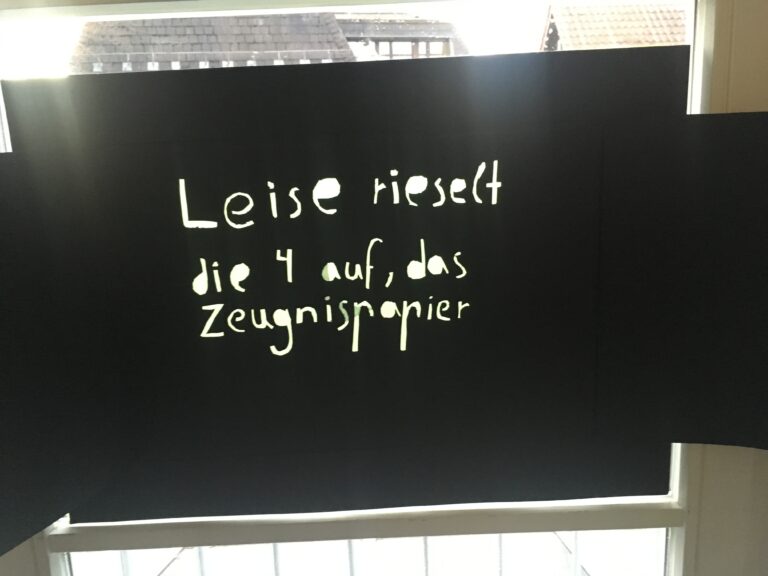 Leise rieselt
die 4 auf, das
Zeugnispapier